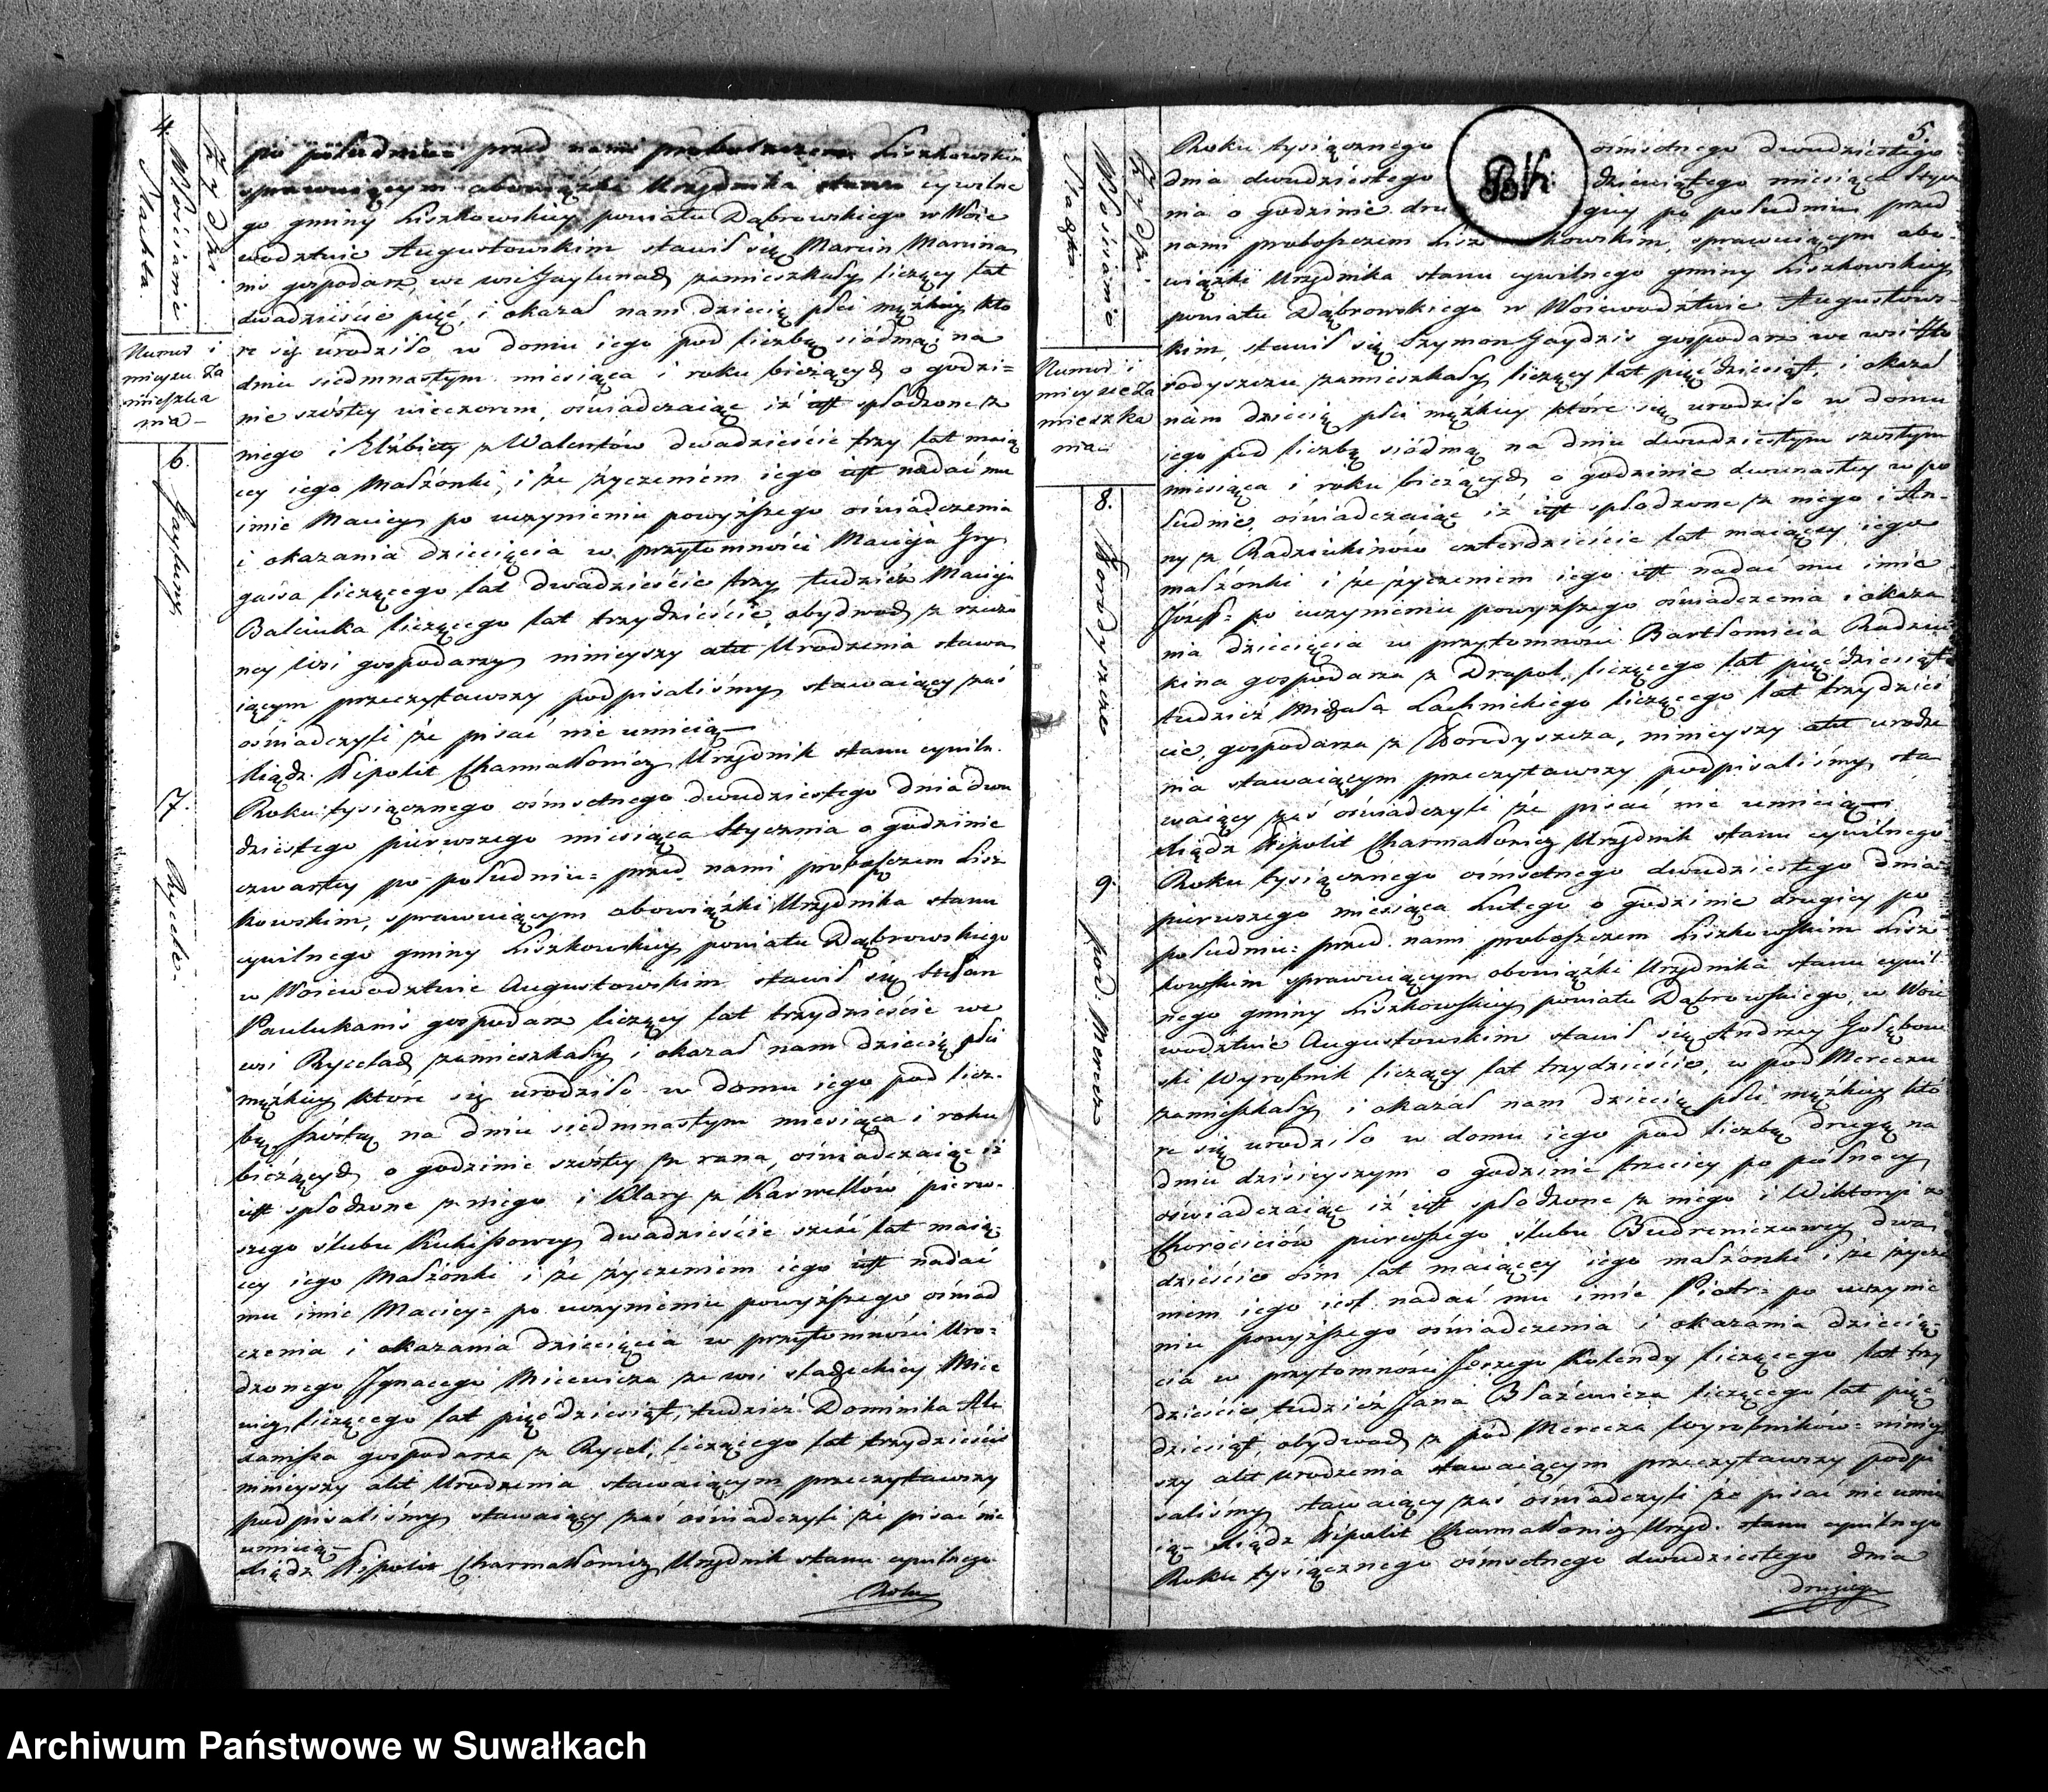 4.
Żydzi
Włościanie
Szlachta.
Numer i
mieysce Za
mieszka
nia
6. Gayluny
7. Rycele.
po południu przed nami proboszczem Liszkowskim
sprawuiącym obowiązki Urzędnika stanu cywilne
go gminy Liszkowskiey powiatu Dąbrowskiego w Woie
wodztwie Augustowskim stawił się Marcin Marcina
nis gospodarz, we wsi Gaylunach zamieszkały liczący lat
dwadzieście pięć, i okazał nam dziecię płci męzkiey kto
re się urodziło w domu iego pod liczbą siódmą, na
dniu siedmnastym miesiąca i roku bieżących o godzi=
nie szóstey wieczorem, oświadczaiąc iż iest spłodzone z
niego i Elżbiety z Walentów dwadzieście trzy lat maią
cey iego Małżonki, i że życzeniem iego iest nadać mu
imie Maciey po uczynieniu powyższego oświadczenia
i okazania dziecięcia w przytomności Macieja Gry
gasa liczącego lat dwadzieście trzy tudzież Macieja
Balciuka liczącego lat trzydzieście, obydwóch z rzeczo
ney wsi gospodarzy, ninieyszy akt Urodzenia stawa
iącym przeczytawszy podpisaliśmy, stawaiący zaś
oświadczyli że pisać nie umieią—
Xiądz Hipolit Charmałłowicz Urzędnik stanu cywiln.
Roku tysiącznego ośmsetnego dwudziestego dnia dwu
dziestego pierwszego miesiąca Stycznia o godzinie
czwartey po południu= przed nami proboszczem Lisz
kowskim, sprawuiącym obowiązki Urzędnika stanu
cywilnego gminy Liszkowskiey powiatu Dąbrowskiego
w Woiewodztwie Augustowskim stawił się Stefan
Paulukanis gospodarz liczący lat trzydzieście we
wsi Rycelach zamieszkały i okazał nam dziecię płci
męzkiey które się urodziło w domu iego pod licz
bą szóstą na dniu siedmnastym miesiąca i roku
bieżących o godzinie szóstey z rana, oświadczaiąc iż
iest spłodzone z niego i Klary z Karwellów pierw-
szego ślubu Kukissowey dwadzieście sześć lat maią-
cey iego Małżonki i że życzeniem iego iest nadać
mu imie Maciey= po uczynieniu powyższego oświad
czenia i okazania dziecięcia w przytomności Uro=
dzonego Ignacego Micewicza ze wsi szlacheckiey Mice
wicz liczącego lat pięćdziesiąt, tudzież Dominika
gospodarza z Rycel, liczącego lat trzydzieście
ninieyszy akt Urodzenia stawaiącym przeczytawszy
podpisaliśmy stawaiący zaś oświadczyli że pisać nie
umieią—
Xiądz Hipolit Charmałłowicz Urzędnik stanu cywilnego
Roku
5.
Żydzi.
Włościanie
Szlachta
Numer i
mieysce Za
mieszka
nia
8. Borodyszcze
9. pod: Merecz
Roku tysiącznego ośmsetnego dwudziestego
dnia dwudziestego dziewiątego miesiąca Stycz
nia o godzinie drugiey po południu przed
nami proboszczem Liszkowskim, sprawuiącym obo-
wiązki Urzędnika stanu cywilnego gminy Liszkowskiey
powiatu Dąbrowskiego w Woiewodztwie Augustows-
kim, stawił się Szymon Gaydzis gospodarz we wsi Bo
rodyszczu zamieszkały liczący lat pięćdziesiąt, i okazał
nam dziecię płci męzkiey które się urodziło w domu
iego pod liczbą siódmą na dniu dwudziestym szóstym
miesiąca i roku bieżących o godzinie dwunastey w po
łudnie, oświadczaiąc iż iest spłodzone z niego i An-
ny z Radziukinów czterdzieście lat maiącey iego
małżonki i że życzeniem iego iest nadać mu imie
Józef= po uczynieniu powyższego oświadczenia i okaza
nia dziecięcia w przytomności Bartłomieia Radziu
kina gospodarza z Drapol, liczącego lat pięćdziesiąt
tudzież Michała Lachnickiego liczącego lat trzydzieś
cie, gospodarza z Borodyszcza, ninieyszy akt urodze
nia stawaiącym przeczytawszy podpisaliśmy sta
waiący zaś oświadczyli że pisać nie umieią—
Xiądz Hipolit Charmałłowicz Urzędnik stanu cywilnego
Roku tysiącznego ośmsetnego dwudziestego dnia
pierwszego miesiąca Lutego o godzinie drugiey po
południu= przed nami proboszczem Liszkowskim Lisz-
kowskim sprawuiącym obowiązki Urzędnika stanu cywil
nego gminy Liszkowskiey powiatu Dąbrowskiego, w Woie
wodztwie Augustowskim stawił się Andrzey Gołębow
ski Wyrobnik liczący lat trzydzieście, w pod Mereczu
zamieszkały i okazał nam dziecię płci męzkiey któ
re się urodziło w domu iego pod liczbą drugą na
dniu dzisieyszym o godzinie trzeciey po północy
oświadczaiąc iż iest spłodzone z niego i Wiktoryi z
Chorościów pierwszego ślubu Budrewiczowey dwa
dzieście ośm lat maiącey iego małżonki i że życze
niem iego iest nadać mu imie Piotr= po uczynie
niu powyższego oświadczenia i okazania dziecię-
cia w przytomności Jerzego Kolendy liczącego lat trzy
dzieście, tudzież Jana Błażewicza liczącego lat pięć
dziesiąt, obydwóch z pod Merecza Wyrobników= niniey
szy akt urodzenia stawaiącym przeczytawszy podpi
saliśmy stawaiący zaś oświadczyli że pisać nie umie
ią— Xiądz Hipolit Charmałłowicz Urzęd. stanu cywilnego
Roku tysiącznego ośmsetnego dwudziestego dnia
drugiego
Archiwum Państwowe w Suwałkach